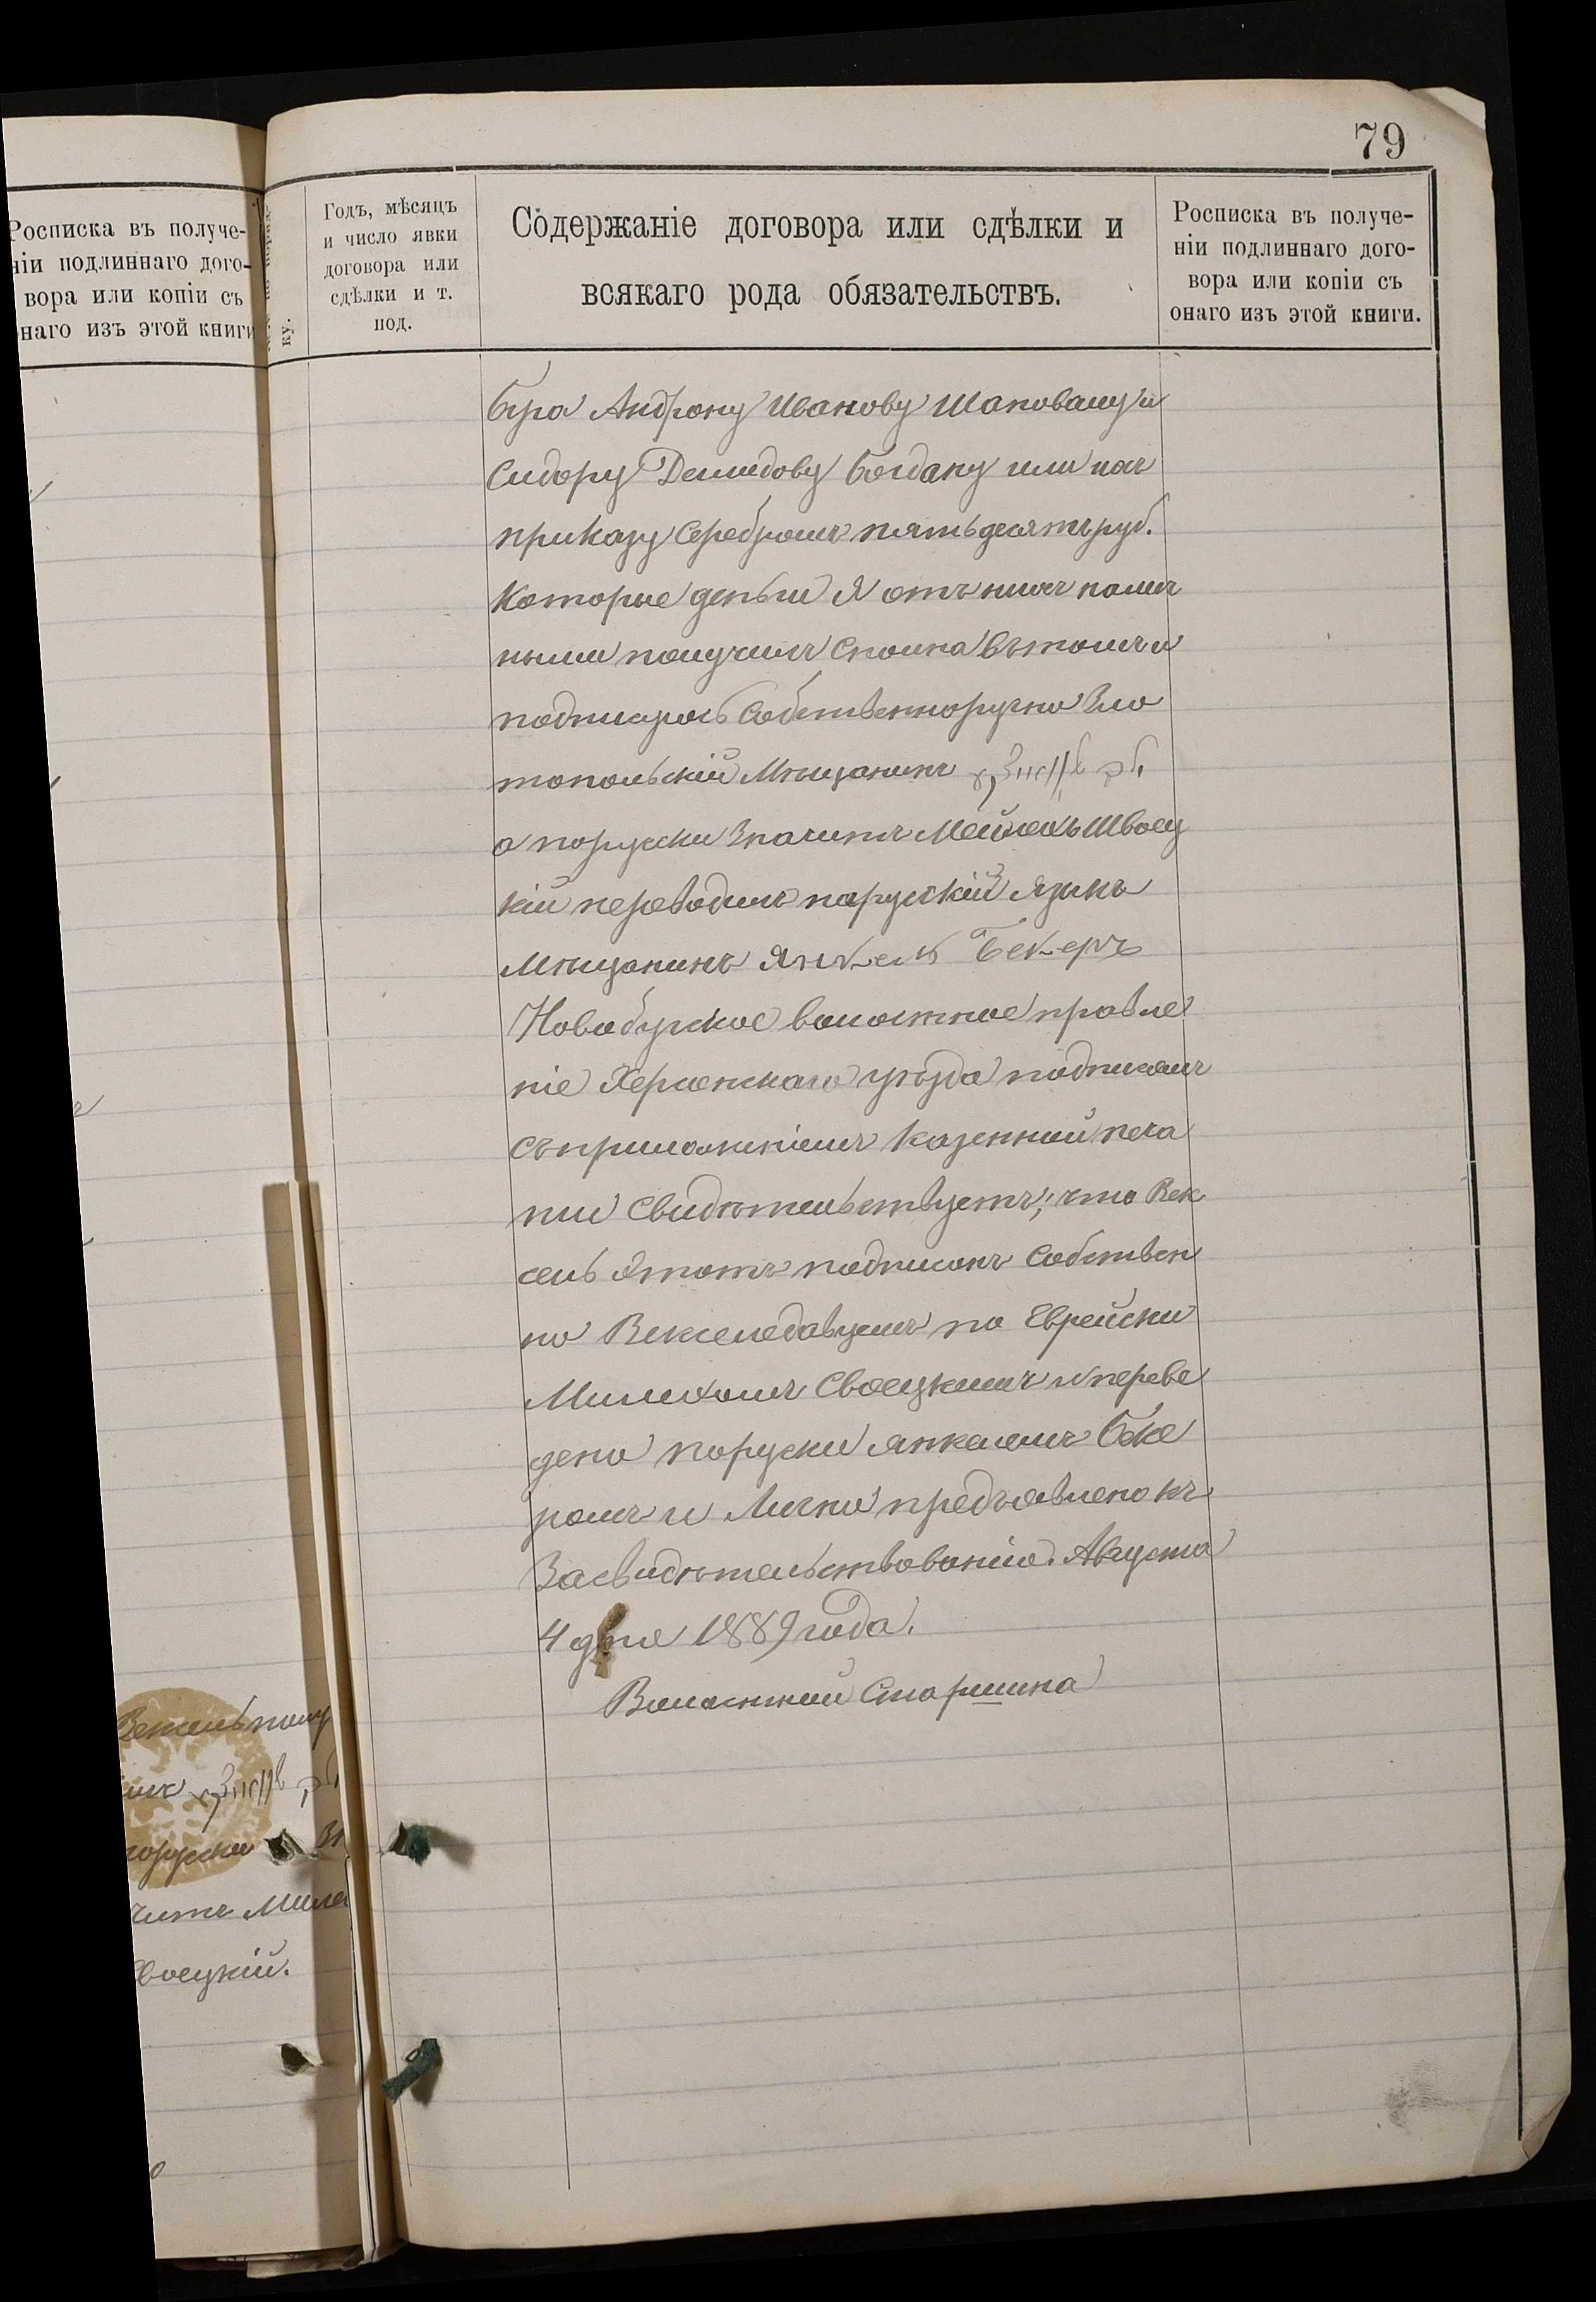 79
Росписка въ получе-
ніи подлиннаго дого-
вора или копіи съ
онаго изъ этой книги
ку.
Годъ, мѣсяцъ
и число явки
договора или
сдѣлки и т.
под.
Содержаніе договора или сдѣлки и
всякаго рода обязательствъ.
Росписка въ получе-
ніи подлиннаго дого-
вора или копіи съ
онаго изъ этой книги.
бра Андрону Иванову Шаповалу и
Сидору Демидову Богдану или ихъ
приказу серебромъ пятьдесятъ руб.
Которые деньги Я отъ нихъ налич
ными получилъ сполна въ томъ и
подписуюсь Собственноручно Зло
топольскій Мѣщанинъ
а поруски Значитъ Мейлехъ Швоец
кій переводилъ на рускій языкъ
Мѣщанинъ Янкель Бекеръ
Новобугское волостное правле
ніе Херсонскаго уѣзда подписомъ
съ приложеніемъ казенной печа
ти Свидѣтельствуетъ, что Век
сель Этотъ подписанъ Собствен
но Векселедавцемъ по Еврейски
Милихомъ Своецкимъ и переве
дено поруски Янкелемъ Беке
ромъ и Лично предъявлено къ
Засвидѣтельствованію. Августа
4 дня 1889 года.
Волостной Старшина
Вексель полу
поруски Зн
читъ Миле
Своецкій.